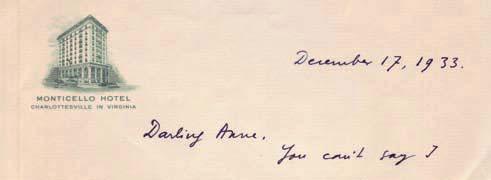 December 17, 1933.
MONTICELLO HOTEL
CHARLOTTESVILLE IN VIRGINIA
Darling Anne.
You can't say I